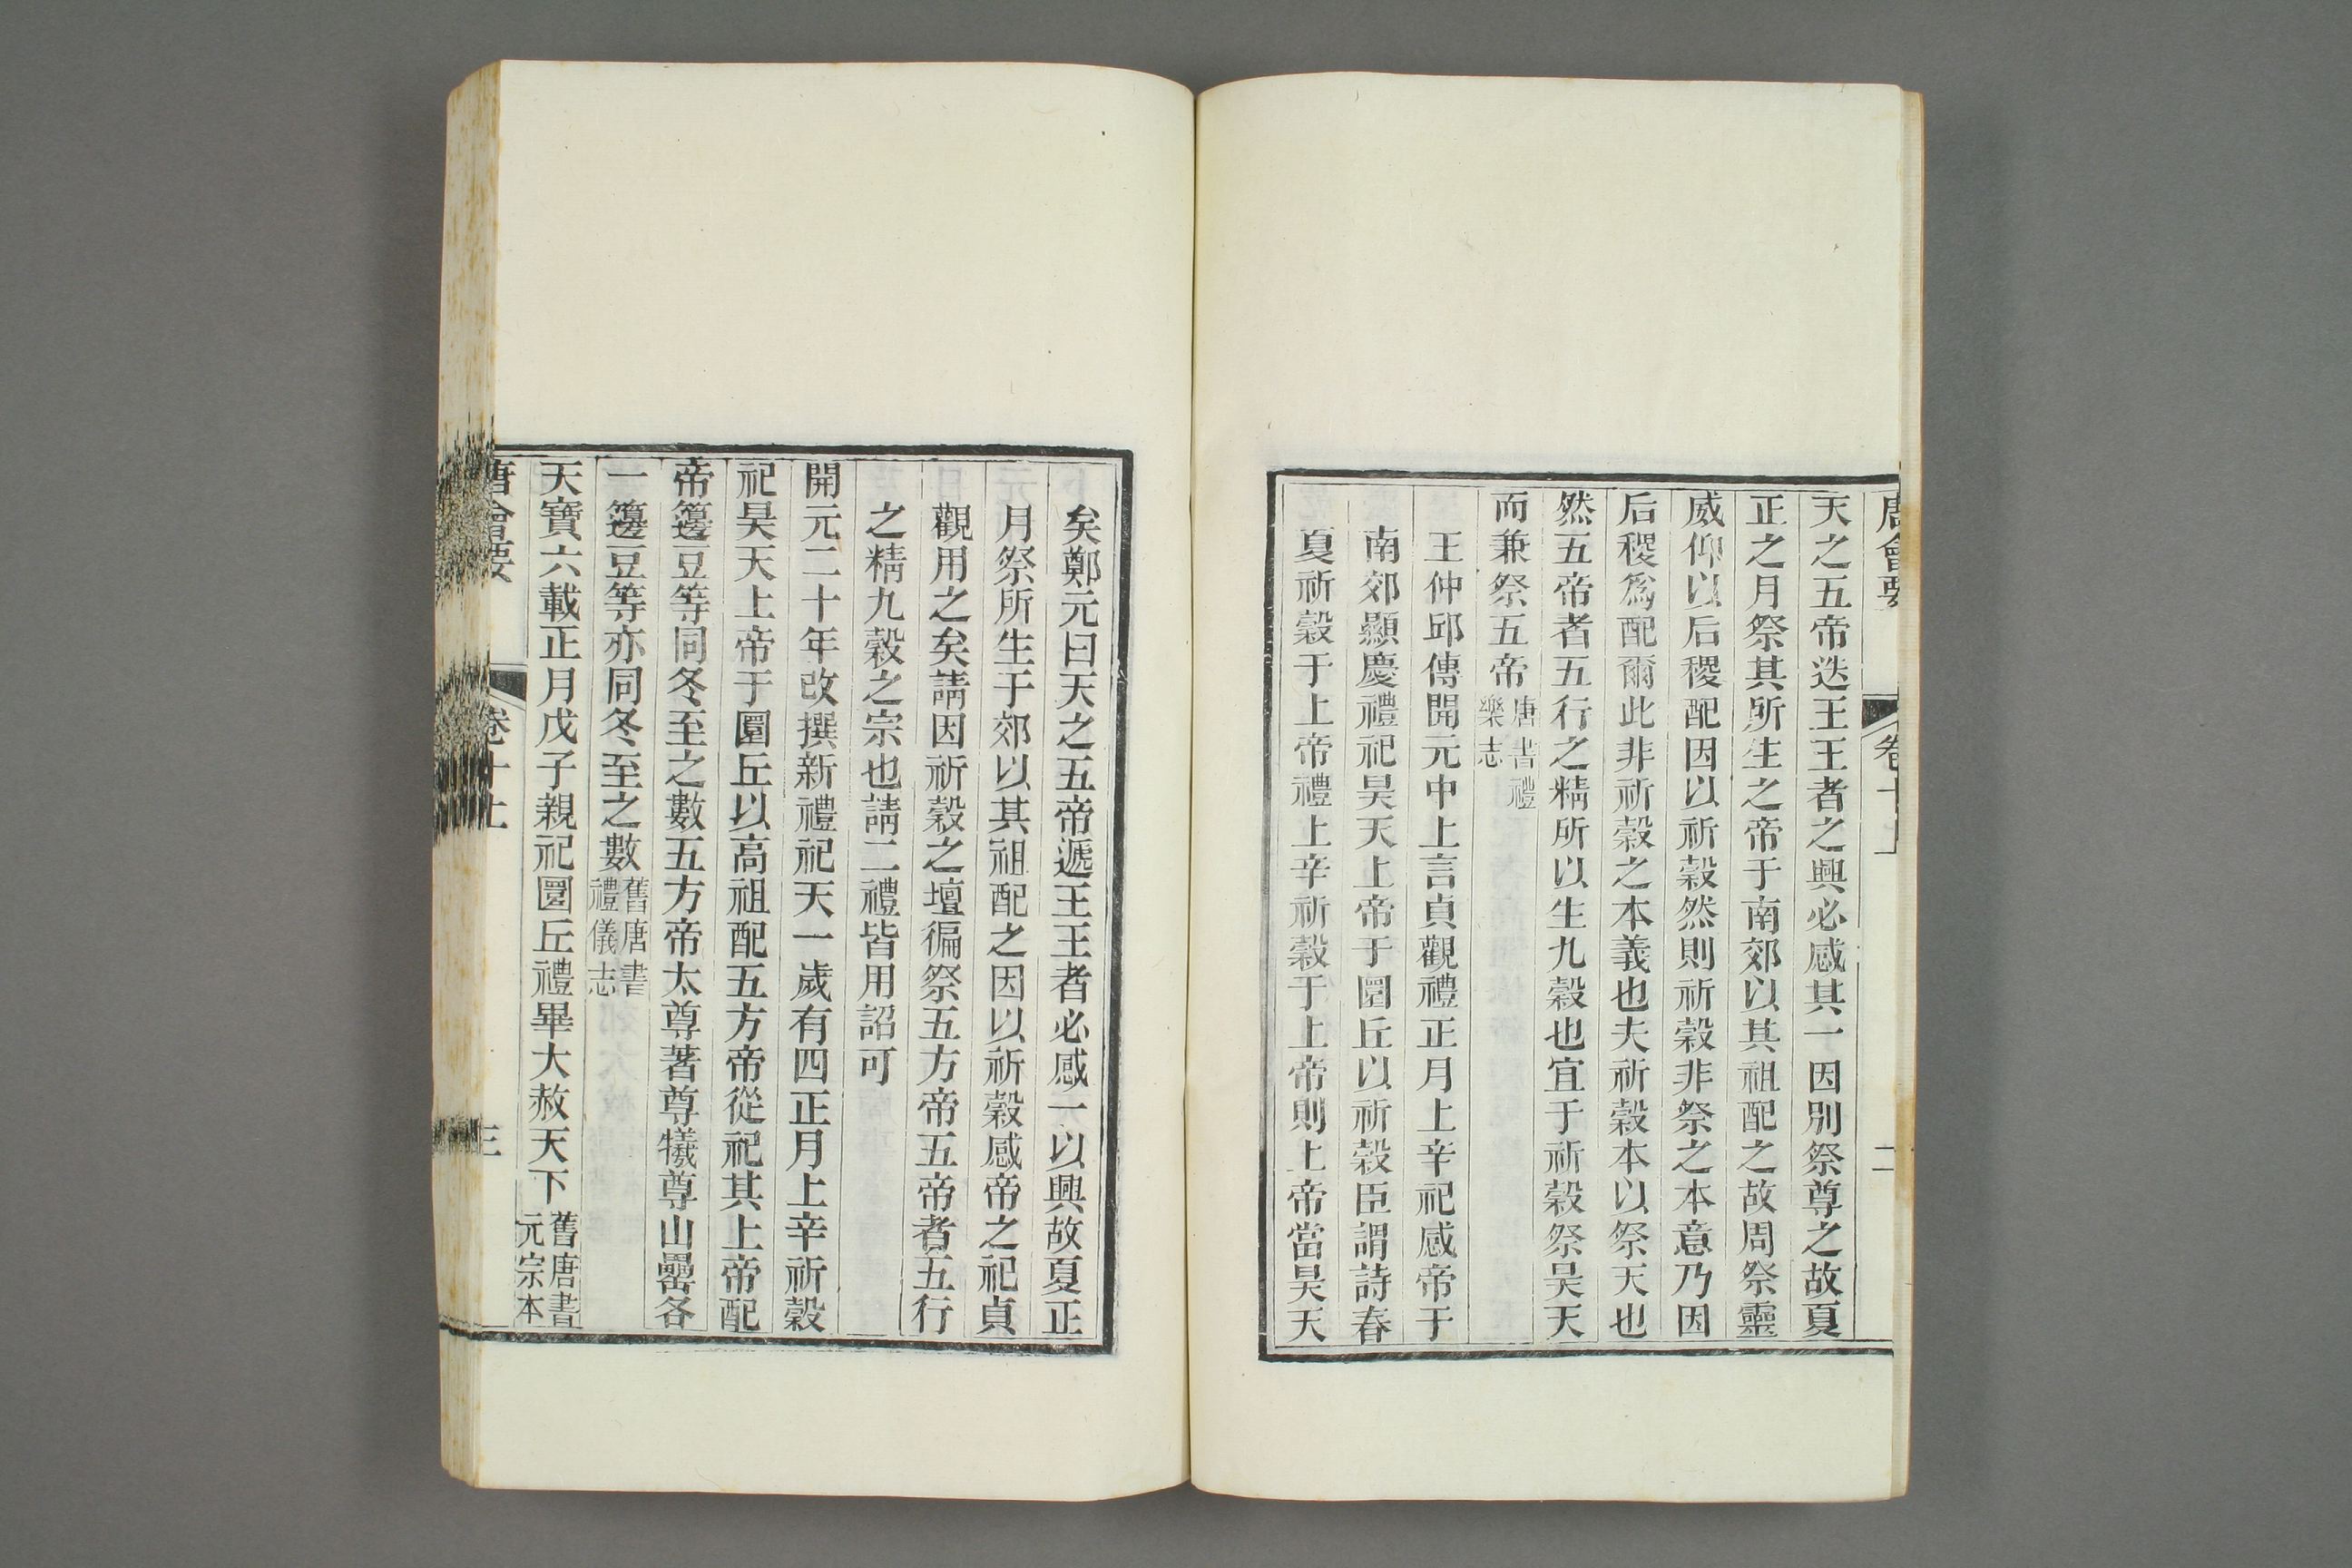 唐會要 卷十上 二
天之五帝迭王王者之興必感其一因別祭尊之故夏
正之月祭其所生之帝于南郊以其祖配之故周祭靈
威仰以后稷配因以祈穀然則祈穀非祭之本意乃因
后稷爲配爾此非祈穀之本義也夫祈穀本以祭天也
然五帝者五行之精所以生九穀也宜于祈穀祭昊天
而兼祭五帝唐書禮樂志
王仲邱傳開元中上言貞觀禮正月上辛祀感帝于
南郊顯慶禮祀昊天上帝于圜丘以祈穀臣謂詩春
夏祈穀于上帝禮上辛祈穀于上帝則上帝當昊天
矣鄭元曰天之五帝遞王王者必感一以興故夏正
月祭所生于郊以其祖配之因以祈穀感帝之祀貞
觀用之矣請因祈穀之壇徧祭五方帝五帝者五行
之精九穀之宗也請二禮皆用詔可
開元二十年改撰新禮祀天一歲有四正月上辛祈穀
祀昊天上帝于圜丘以高祖配五方帝從祀其上帝配
帝籩豆等同冬至之數五方帝太尊著尊犧尊山罍各
一籩豆等亦同冬至之數舊唐書禮儀志
天寶六載正月戊子親祀圜丘禮畢大赦天下舊唐書元宗本
唐會要 卷十上 三